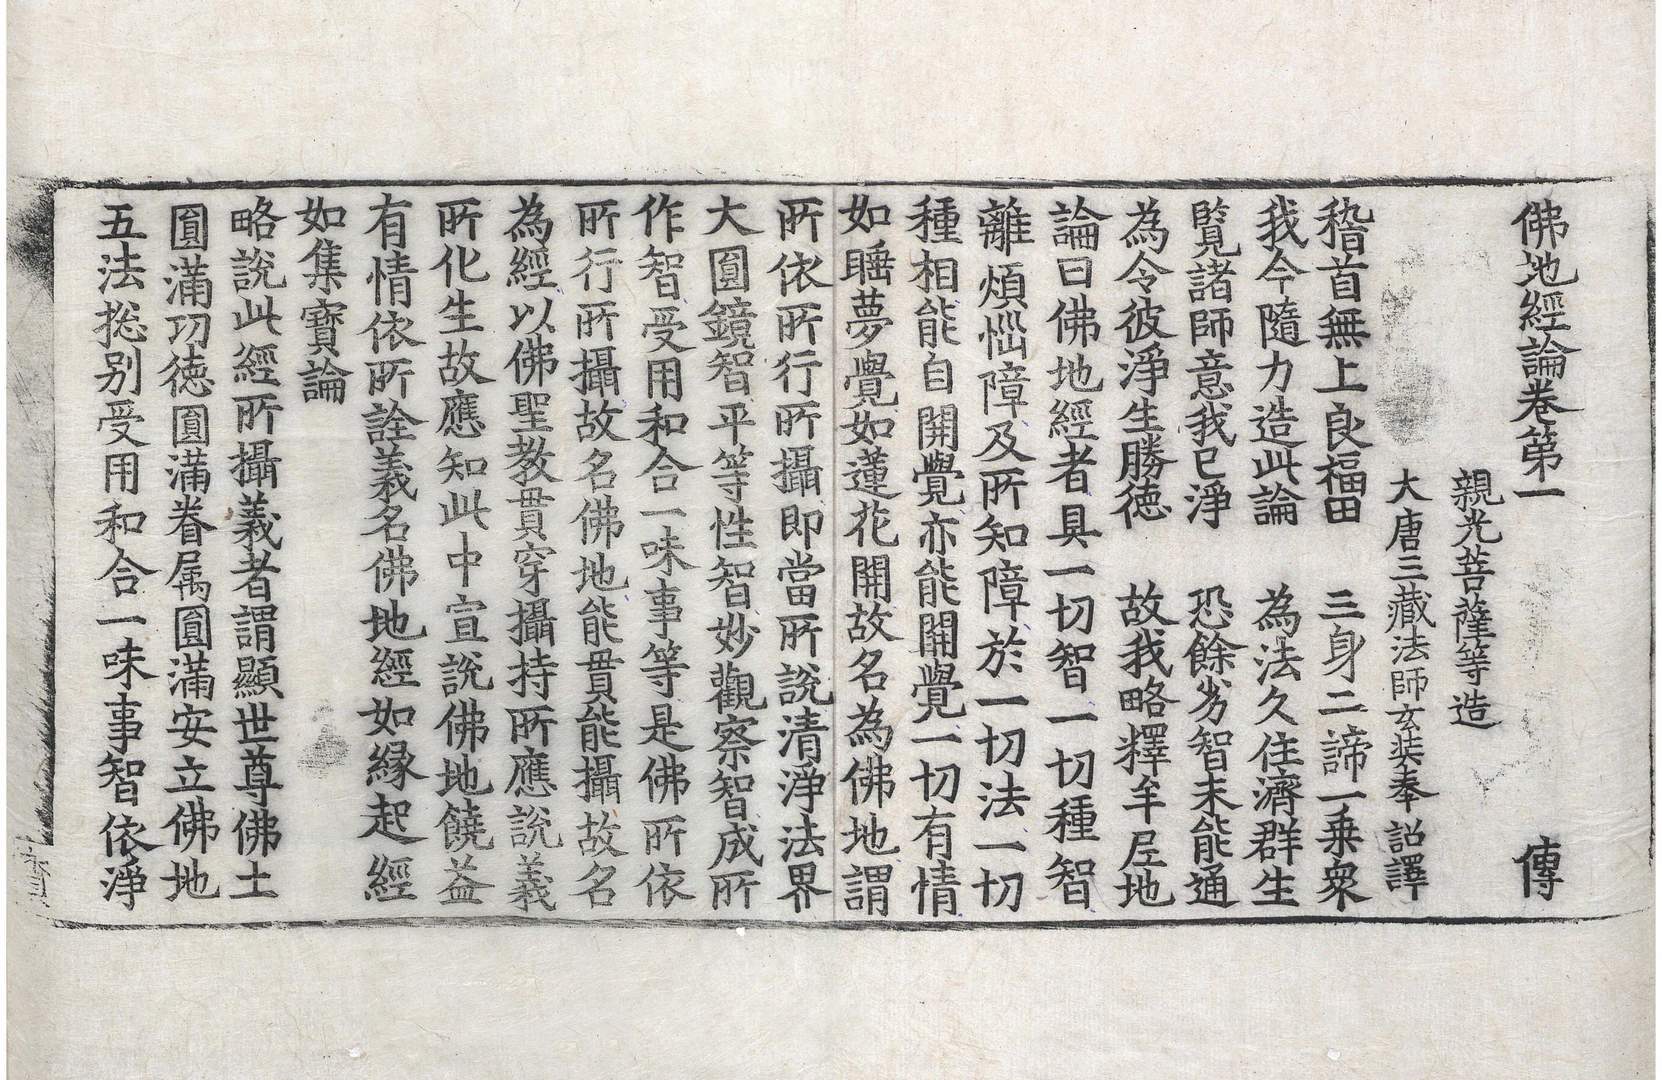 佛地經論卷第一 傳
親光菩薩等造
大唐三藏法師玄奘奉 詔譯
稽首無上良福田 三身二諦一乗衆
我今隨力造此論 為法久住濟群生
覽諸師意我已淨 恐餘劣智未能通
為令彼淨生勝徳 故我略釋牟𡰱地
論曰佛地經者具一切智一切種智
離煩惱障及所知障於一切法一切
種相能自開覺亦能開覺一切有情
如睡夢覺如蓮花開故名為佛地謂
所依所行所攝即當所說清淨法界
大圓鏡智平等性智妙觀察智成所
作智受用和合一味事等是佛所依
所行所攝故名佛地能貫能攝故名
為經以佛聖教貫穿攝持所應說義
所化生故應知此中宣說佛地饒益
有情依所詮義名佛地經如縁起經
如集寶論
略說此經所攝義者謂顯世尊佛土
圓滿功徳圓滿眷属圓滿安立佛地
五法揔别受用和合一味事智依淨